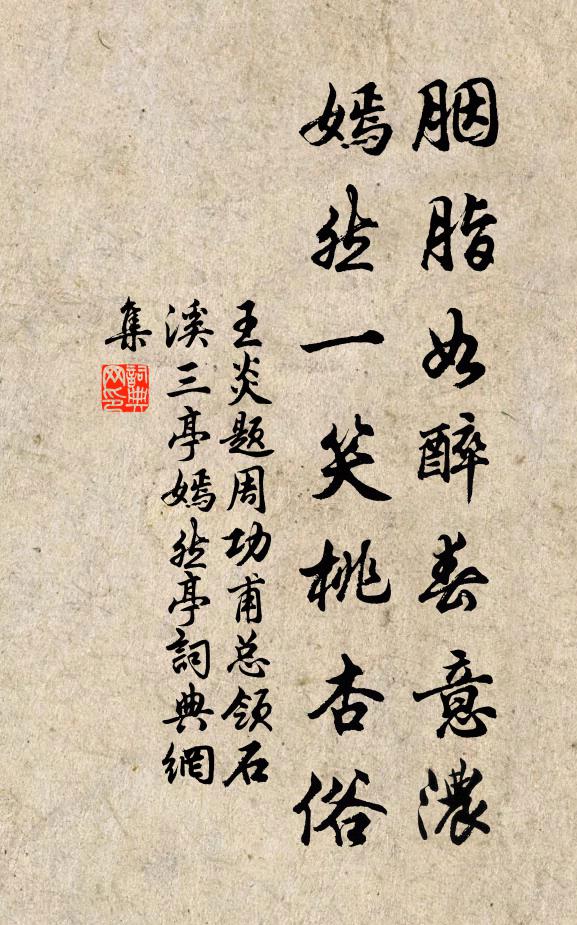 胭脂如醉春意濃
嫣然一笑桃杏俗
王炎题周功甫总领石
溪三亭嫣然亭詞典網
集
詞典
网印